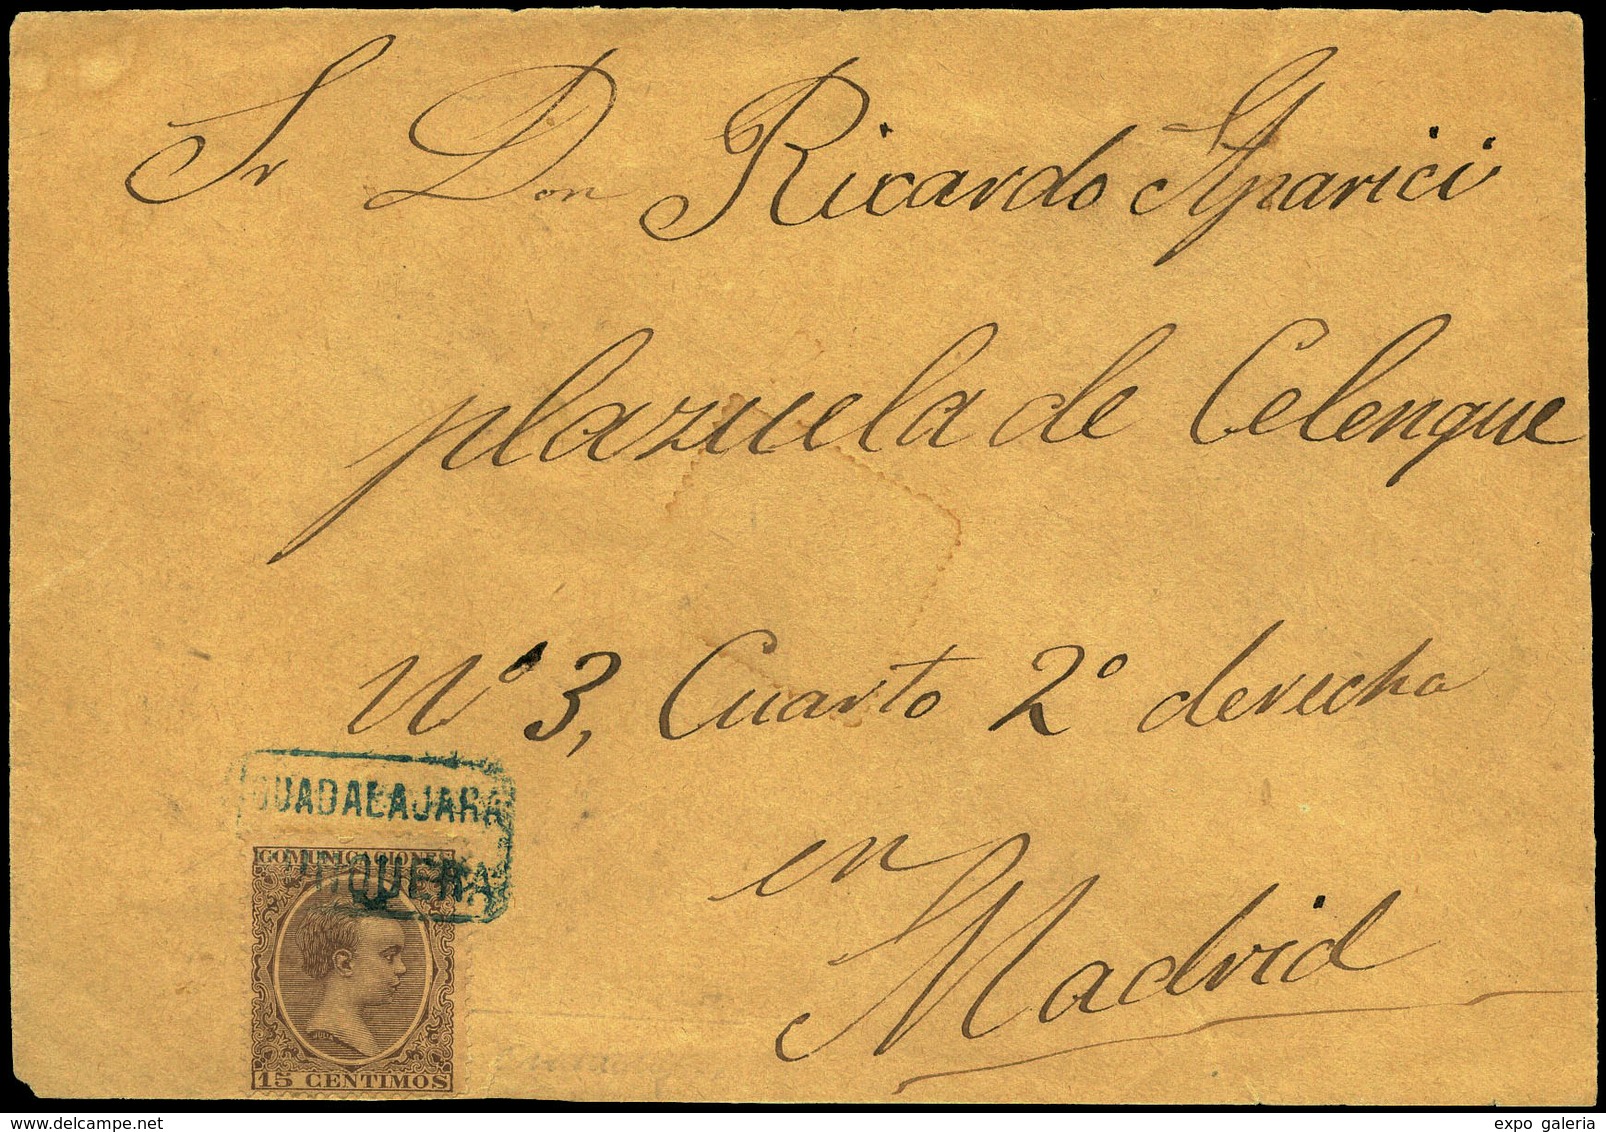 Sr Don Ricardo Aparici
plazuela de Celenque
Nº 3, Cuarto 2º derecha
en
Madrid
GUADALAJARA
COMUNICACIONES
JULIA
15 CENTIMOS
delcampe.net
expo galeria